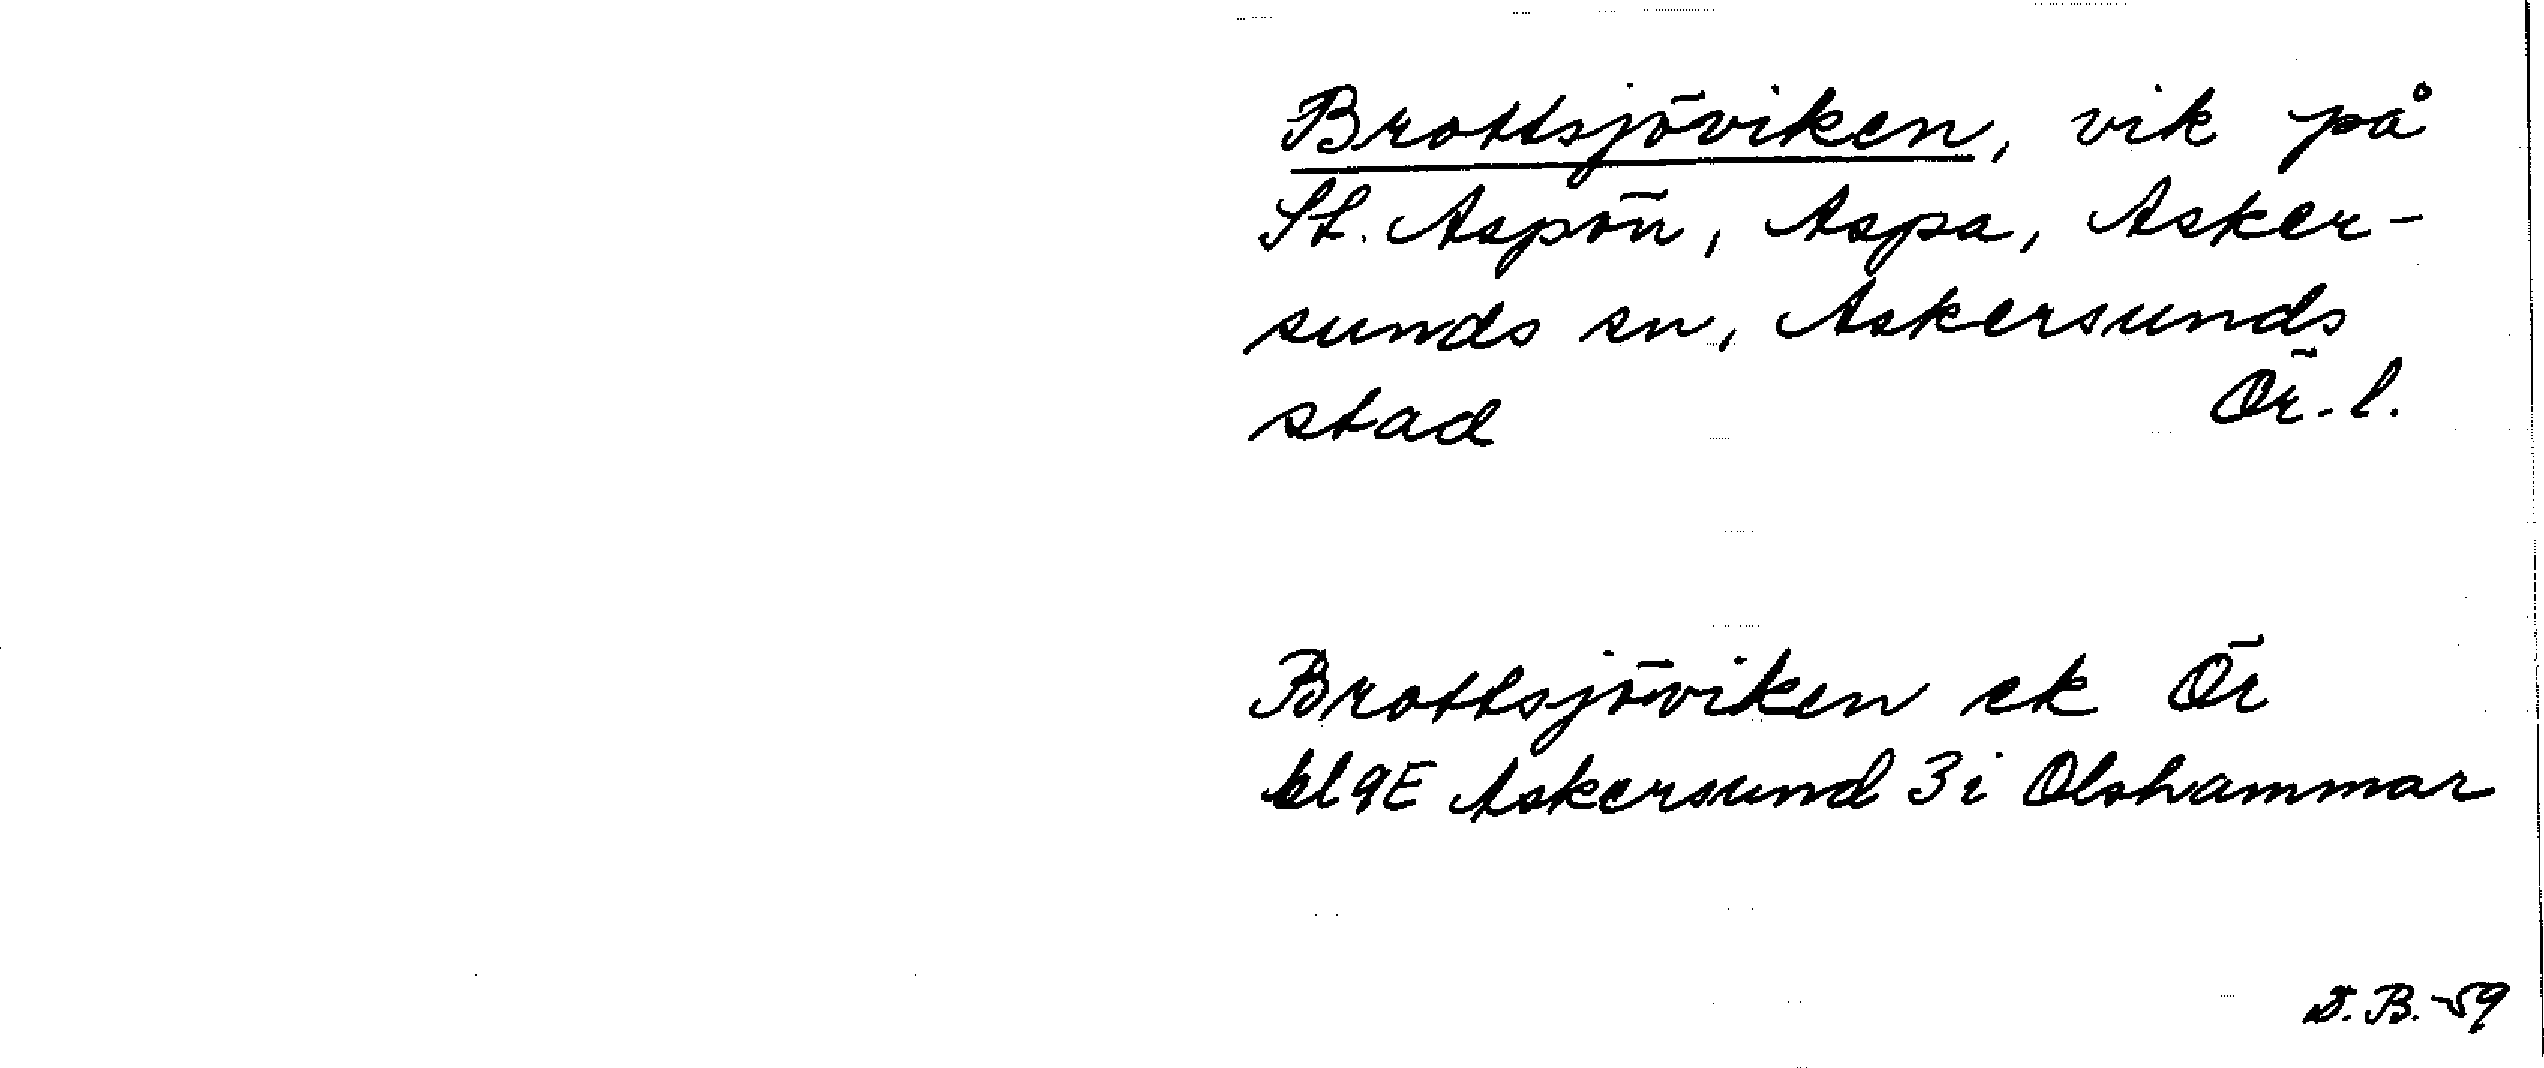 Brottsjöviken, vik på
St. Aspön, Aspa, Asker-
sunds sn, Askersunds
stad Ör. l.
Brottsjöviken ek Ör
bl 9E Askersund 3i Olshammar
D.B.-59